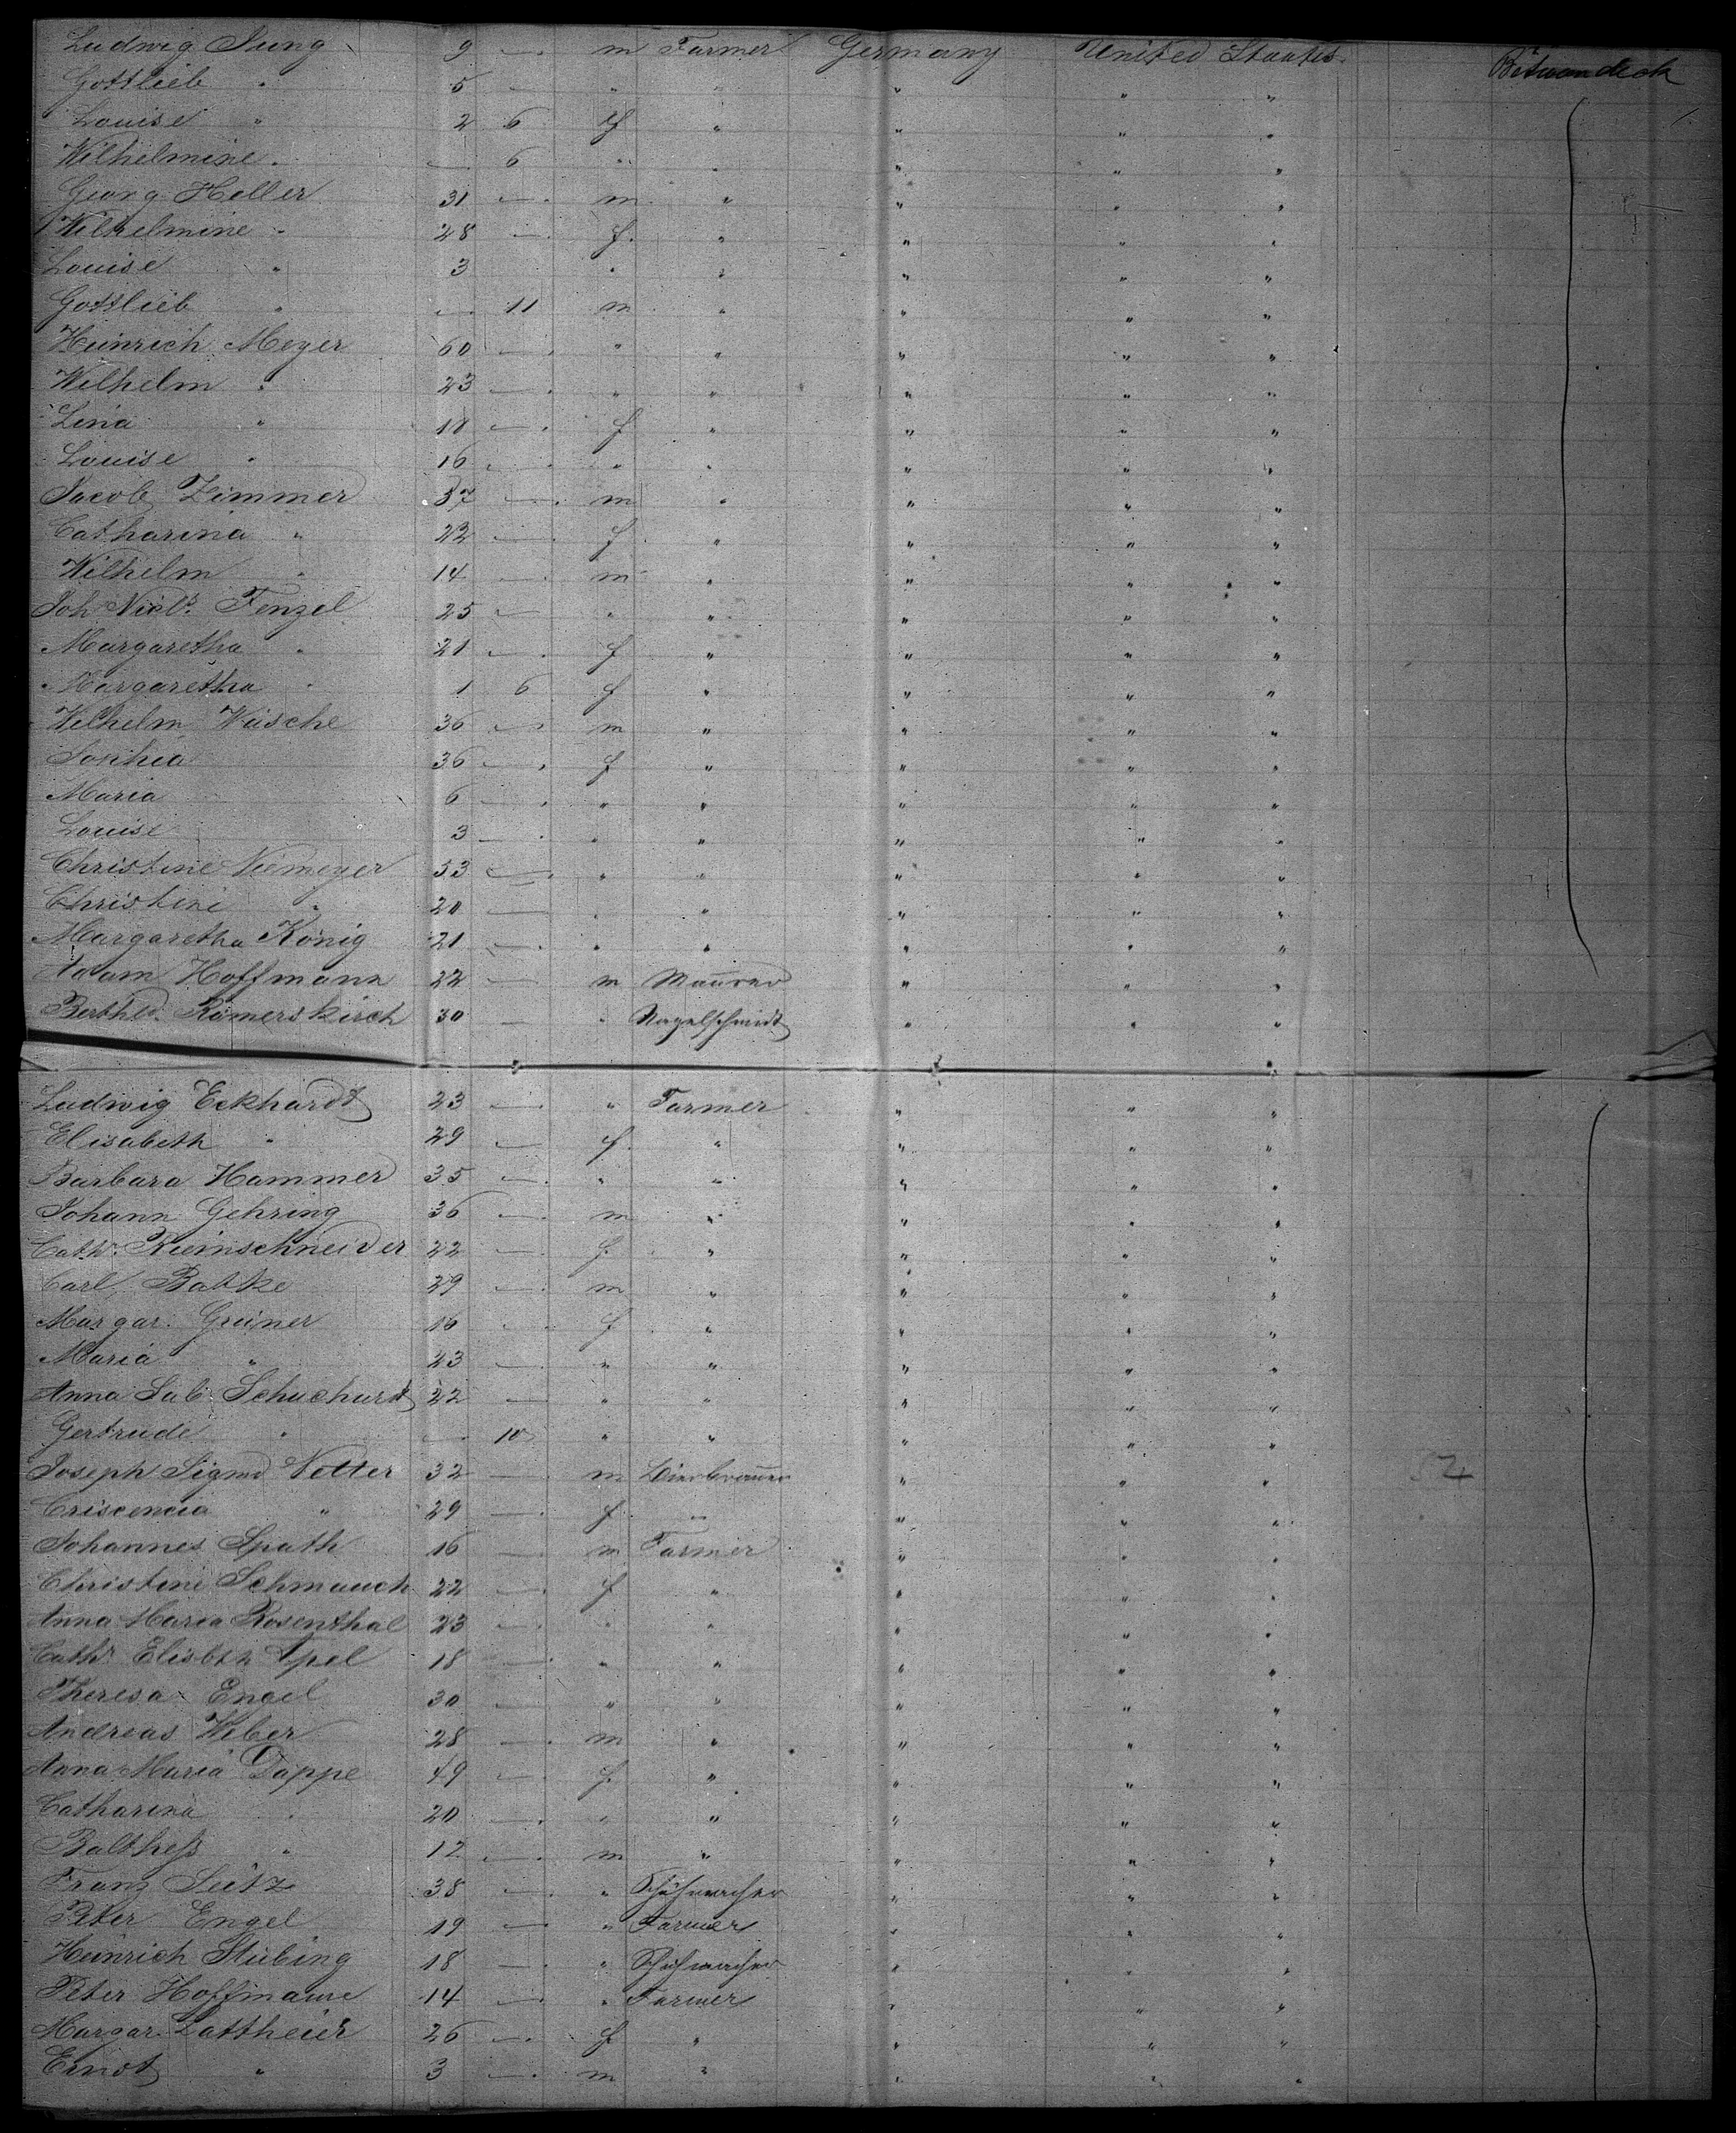 Ludwig Jung 9 — m Farmer Germany United Staates. Betwendeck
Gottlieb " 5 — " " " " "
Louise " 2 6 f " " " "
Wilhelmine " — 6 " " " " "
Georg Heller 31 — m " " " "
Wilhelmine " 28 — f. " " " "
Louise " 3 " " " " "
Gottlieb " — 11 m " " " "
Heinrich Meyer 60 — " " " " "
Wilhelm " 23 — " " " " "
Lina " 18 — f " " " "
Louise " 16 — " " " " "
Jacob Zimmer 57 — m " " " "
Catharina " 22 — f " " " "
Wilhelm " 14 — m " " " "
Joh Nicls. Fenzel 25 — " " " " "
Margaretha " 21 — f " " " "
Margaretha " 1 6 f " " " "
Wilhelm Wüsche 36 — m " " " "
Sophia 36 — f " " " "
Maria 6 — " " " " "
Louise 3 — " " " " "
Christine Niemeyer 53 — " " " " "
Christine " 20 — " " " " "
Margaretha König 21 — " " " " "
Adam Hoffmann 22 — m Maurer " " "
Berthld. Römerskirch 30 — " Nagelschmidt " " "
Ludwig Eckhardt 23 — " Farmer " " "
Elisabeth " 29 — f. " " " "
Barbara Hammer 35 — " " " " "
Johann Gehring 36 — m " " " "
Cath. Riemschneider 22 — f. " " " "
Carl Batke 29 — m " " " "
Margar. Greiner 16 — f " " " "
Maria " 23 — " " " " "
Anna Sab. Schuchardt 22 — " " " " "
Gertrude " — 10 " " " " "
Joseph Sigmd Vetter 32 — m Bierbrauer " " " 54
Criscencia " 29 — f " " " "
Johannes Spath 16 — m Farmer " " "
Christine Schmauch 22 — f " " " "
Anna Maria Rosenthal 23 — " " " " "
Cath. Elisbth Apel 18 — " " " " "
Theresa Engel 30 — " " " " "
Andreas Weber 28 — m " " " "
Anna Maria Dappe 49 — f. " " " "
Catharina " 20 — " " " " "
Balthess " 12 — m " " " "
Franz Seitz 38 — " Schuhmacher " " "
Peter Engel 19 — " Farmer " " "
Heinrich Stübing 18 — " Schuhmacher " " "
Peter Hoffmann 14 — " Farmer " " "
Margar. Lattheier 26 — f " " " "
Ernst " 3 — m " " " "